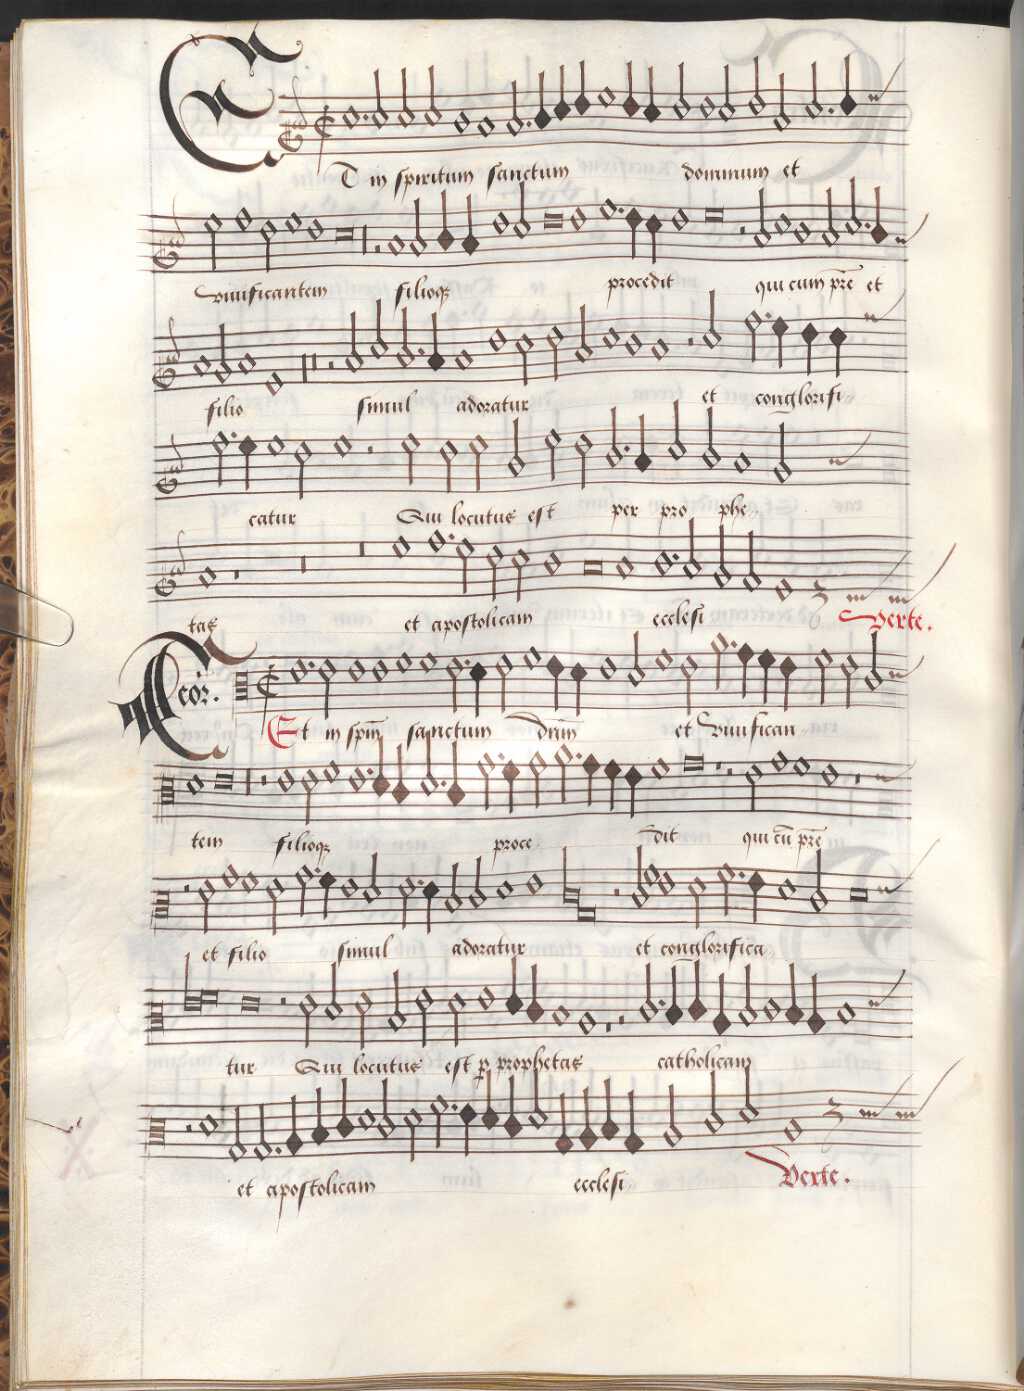 ET in spiritum sanctum dominum et
vivificantem filioq̃ procedit qui cum pr̃e et
filio simul adoratur et conglorifi
catur Qui locutus est per pro phe
tas et apostolicam ecclesi Verte.
Tenor.
Et in spm̃ sanctum dñm et vivifican
tem filioq̃ proce dit qui cũ pr̃e
et filio simul adoratur et conglorifica
tur Qui locutus est ꝑ prophetas catholicam
et apostolicam ecclesi Verte.